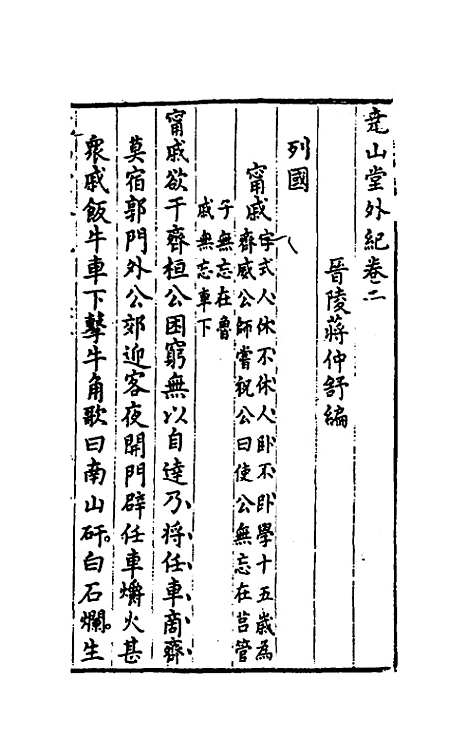 堯山堂外紀卷二
晉陵蔣仲舒編
列國
甯戚
字式人休不休人臥不臥學十五歲為
齊威公師嘗祝公曰使公無忘在莒管
子無忘在魯
戚無忘車下
甯戚欲干齊桓公困窮無以自達乃將任車商齊
莫宿郭門外公郊迎客夜開門辟任車爝火甚
衆戚飯牛車下擊牛角歌曰南山矸。白石爛。生